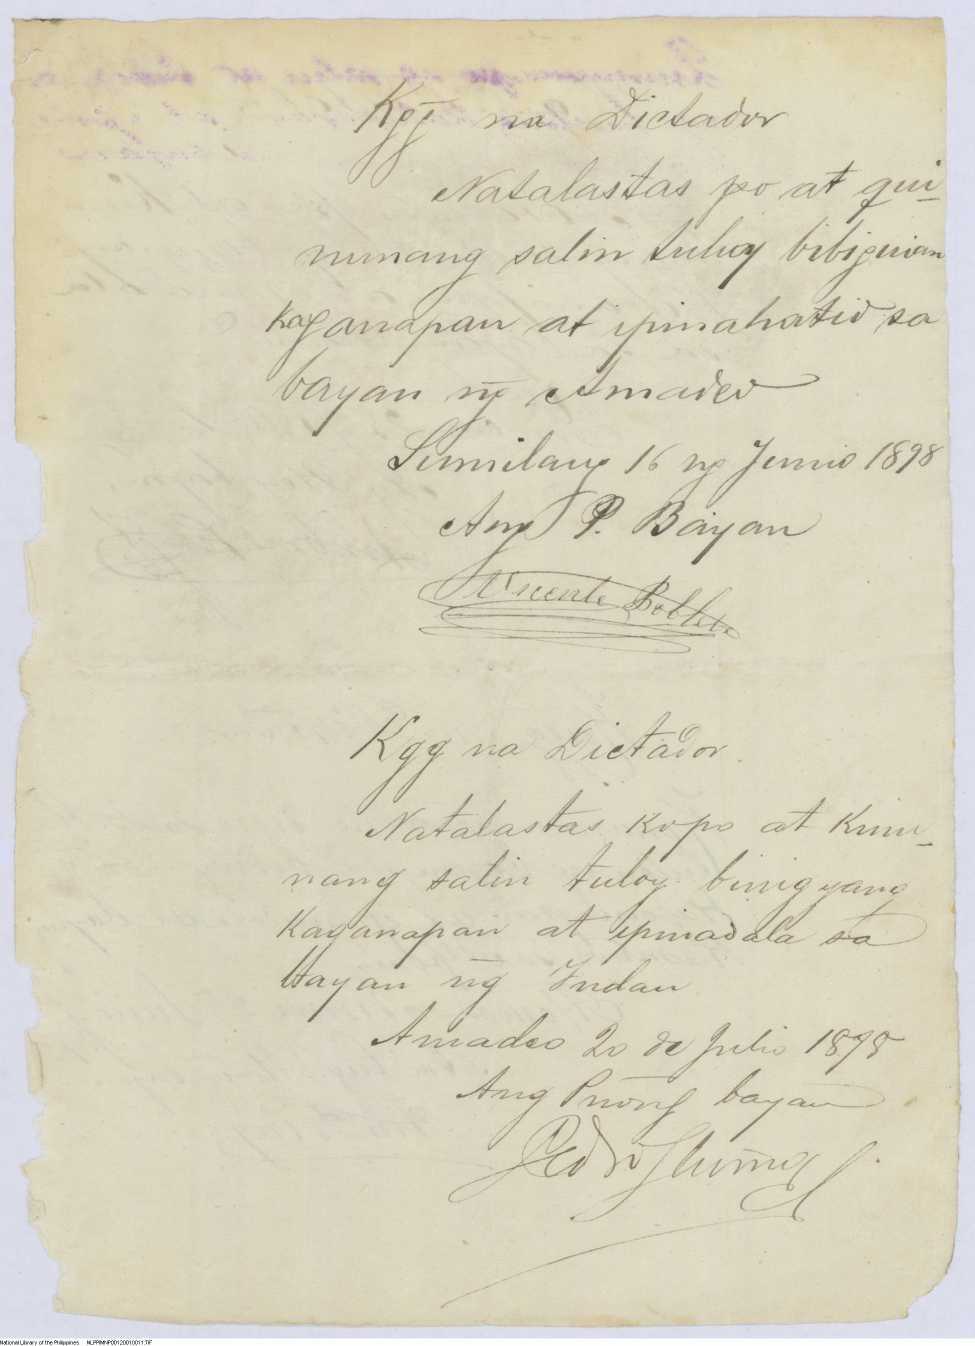 Kgg na Dictador
Natalastas po at qui-
nunang salin tuluy bibiguian
kaganapan at ipinahatid sa
bayan ng̃ Amadeo
Sumilang 16 ng Junio 1898
Ang P. Bayan
Vicente Poblete
Kgg na Dictador
Natalastas ko po at kinu-
nang salin tuloy binigyang
kaganapan at ipinadala sa
bayan ng̃ Indan
Amadeo 20 de Julio 1898
Ang Punong bayan
Pedro
National Library of the Philippines NLPPIMNP00120010011.TIF